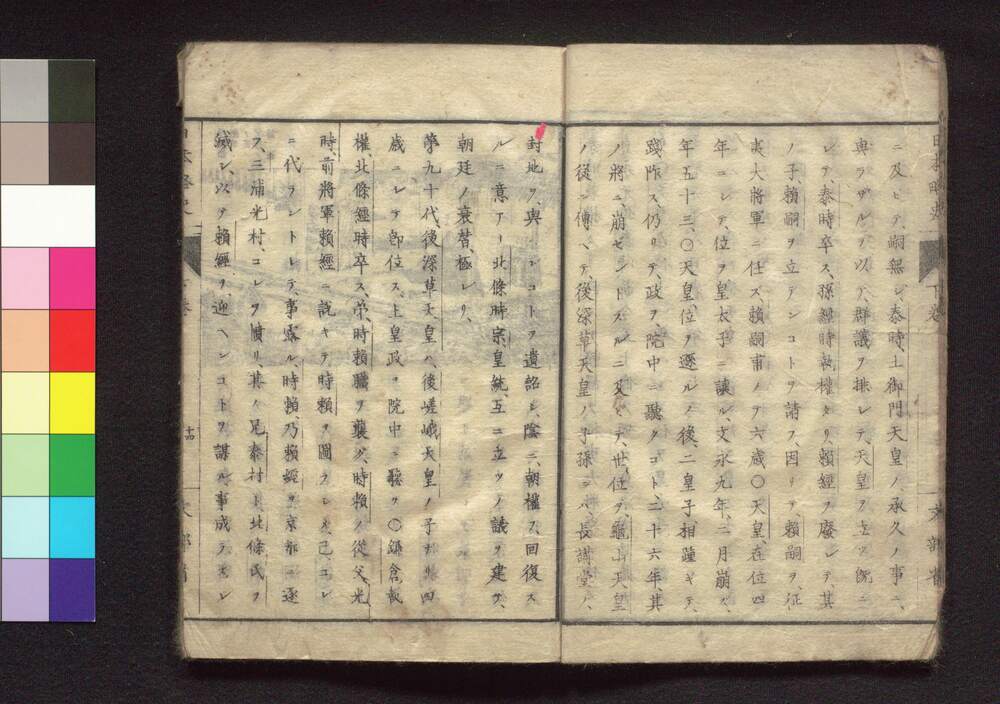 ニ及ヒテ嗣無シ、泰時、土御門天皇ノ承久ノ事ニ、
與ラザルヲ以テ、群議ヲ排シテ、天皇ヲ立ツ、既ニ
シテ、泰時卒ス、孫經時執權タリ、賴經ヲ廢シテ、其
ノ子賴嗣ヲ立テンコトヲ請フ、因リテ、賴嗣ヲ、征
夷大將軍ニ任ス、賴嗣甫メテ六歳〇天皇、在位四
年ニシテ、位ヲ皇太子ニ讓ル文永九年、二月崩ス
年五十三、〇天皇位ヲ遜ルノ後、二皇子相踵ギテ、
踐祚ス、仍リテ、政ヲ院中ニ聽クコト、二十六年、其
ノ將ニ、崩ゼントスルニ及ビ、テ、世仁ヲ、龜山天皇
ノ從ニ傳ヘテ、後深草天皇ノ子孫ニハ、長講堂ノ、
封地ヲ、與ンコトヲ遺詔シ、陰ニ、朝權ヲ、回復ス
ルニ意アリ北條時宗、皇統、互ニ立ツノ議ヲ建ツ、
朝廷ノ衰替、極レリ、
第九十代、後深草天皇ハ、後嵯峨天皇ノ子ナリ四
歳ニシテ卽位ス、上皇政ヲ院中ニ聽ク〇鎌倉執
權、北條經時卒ス、弟、時賴職ヲ襲グ、時賴ノ從父光
時、前將軍賴經ニ説キテ時賴ヲ圖ラシメ、己コレ
ニ代ラントシ、テ、事露ル、時賴、乃賴經ヲ、京都ニ逐
フ、三浦光村、コレヲ憤リ其ノ兄泰村ト、北條氏ヲ
滅シ、以テ賴經ヲ迎ヘンコトヲ謀ル、事成ラズシ